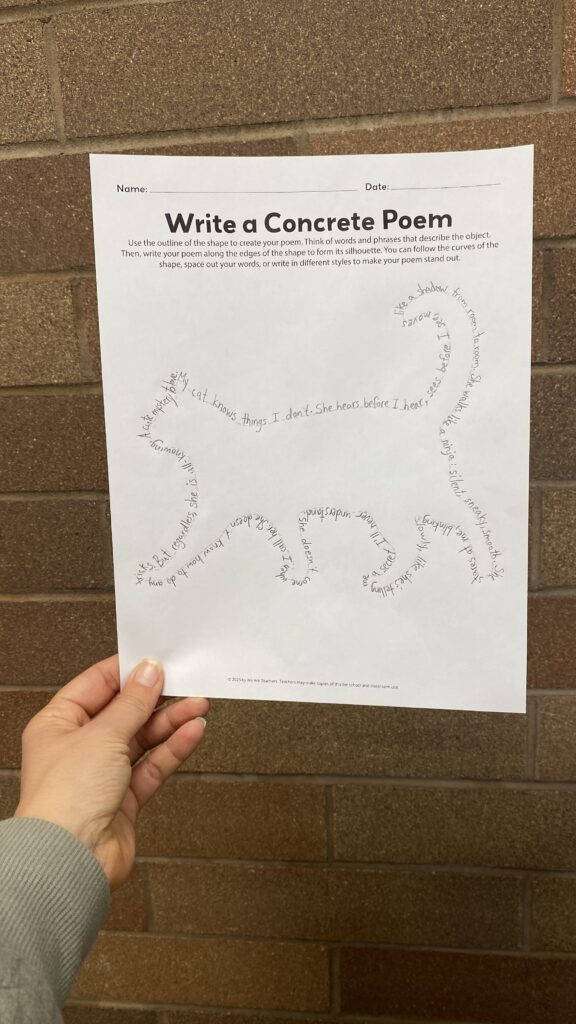 Name: Date:
Write a Concrete Poem
Use the outline of the shape to create your poem. Think of words and phrases that describe the object.
Then, write your poem along the edges of the shape to form its silhouette. You can follow the curves of the
shape, space out your words, or write in different styles to make your poem stand out.
My cat knows things I don't. She hears before I hear, sees before I see, moves
like a shadow from room to room. She walks like a ninja: silent, sneaky, smooth. She
stares at me, blinking
slowly, like she's telling
me a
I'll never understand.
She doesn't come
when I call her. She doesn't know how to do any
But regardless, she is
all-knowing.
A cute mystery
© 2025 by We Are Teachers. Teachers may make copies of this for school and classroom use.